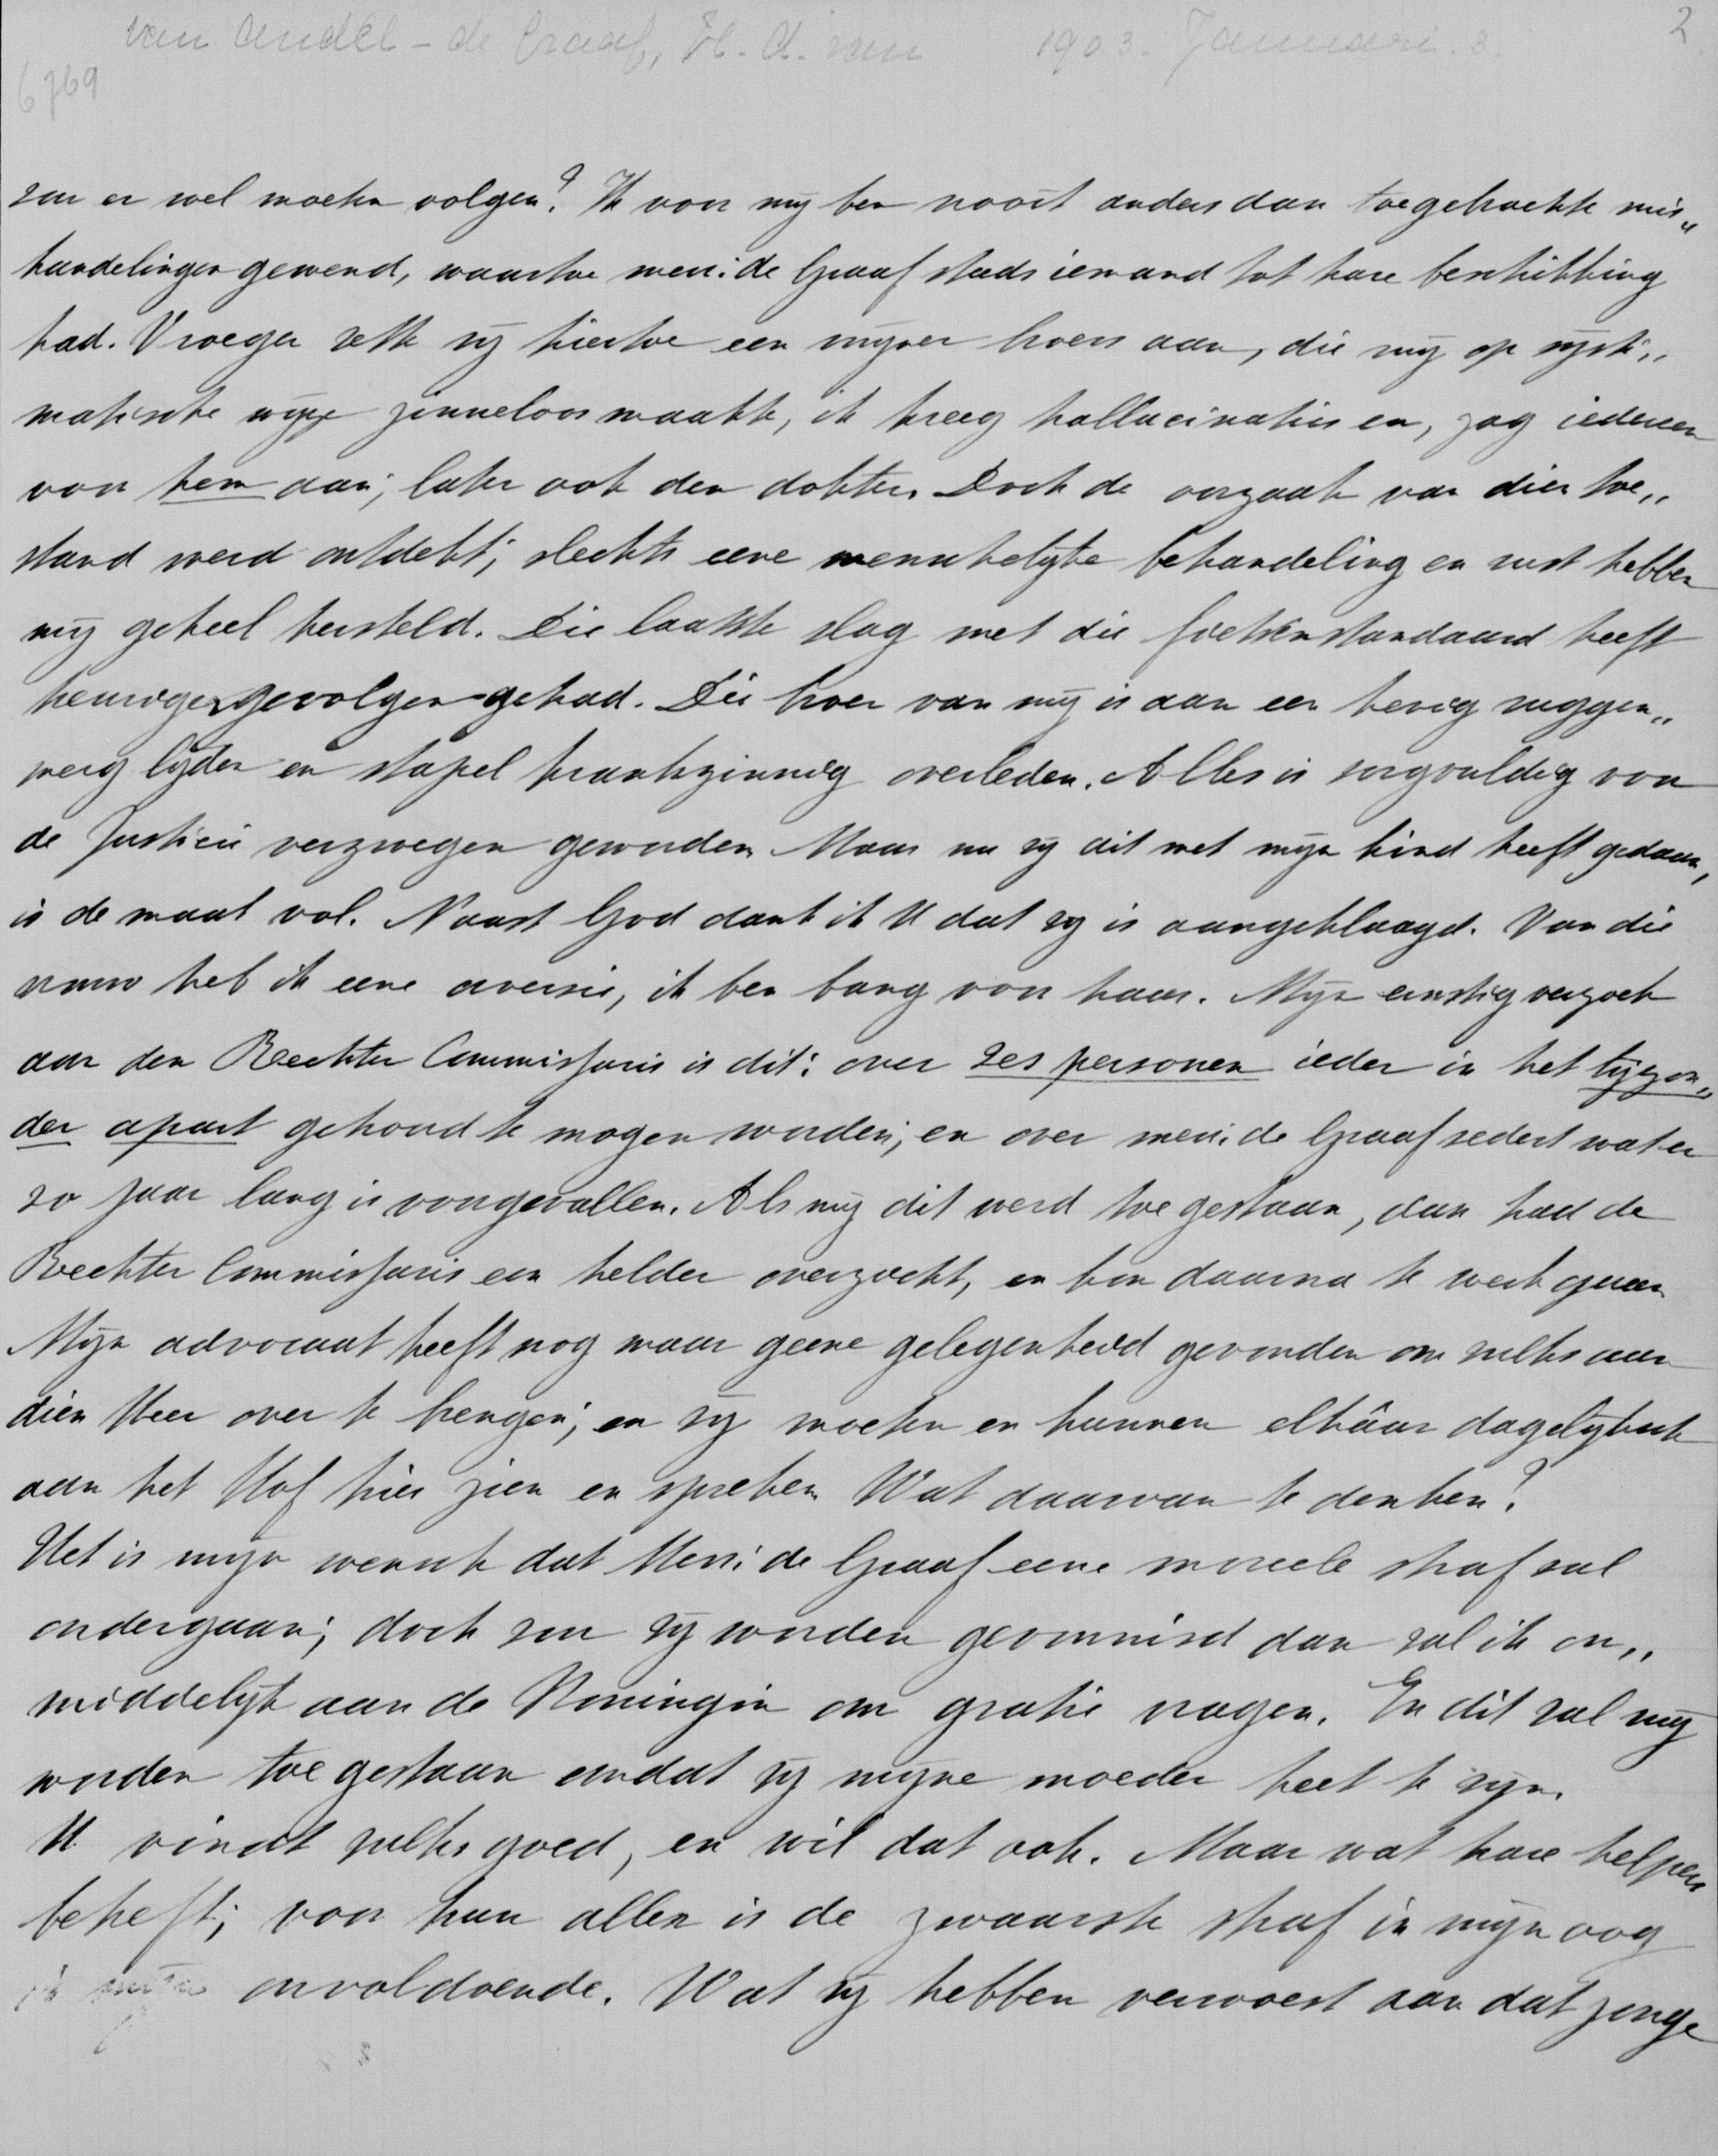 van Andel - de Graaf, H. A. van 1903. Januari. 3. 2
6769
zou er wel moeten volgen? Ik voor mij ben nooit anders dan toegebrachte mis„
handelingen gewend, waartoe mevr: de Graaf steeds iemand tot hare beschikking
had. Vroeger zette zij hiertoe een mijner broers aan, die mij op syste„
matische wijze zinneloos maakte, ik kreeg hallucinaties en, zag iedereen
voor hem aan; later ook den dokter. Doch de oorzaak van dien toe„
stand werd ontdekt; slechts eene menschelijke behandeling en rust hebben
mij geheel hersteld. Die laatste slag met die fietsenstandaard heeft
treurige gevolgen gehad. Die broer van mij is aan een hevig ruggen„
merg lijden en stapel krankzinnig overleden. Alles is zorgvuldig voor
de Justicie verzwegen geworden Maar nu zij dit met mijn kind heeft gedaan,
is de maat vol. Naast God dank ik U dat zij is aangeklaagd. Van die
vrouw heb ik eene aversie, ik ben bang voor haar. Mijn ernstig verzoek
aan den Rechter Commissaris is dit: over zes personen ieder in het bijzon„
der apart gehoord te mogen worden; en over mevr: de Graaf zedert wat er
20 jaar lang is voorgevallen. Als mij dit werd toegestaan, dan had de
Rechter Commissaris een helder overzicht, en kon daarna te werk gaan
Mijn advocaat heeft nog maar geene gelegenheid gevonden om zulks aan
dien Heer over te brengen; en zij moeten en kunnen elkâar dagelijksch
aan het Hof hier zien en spreken Wat daarvan te denken?
Het is mijn wensch dat Mevr: de Graaf eene moreele straf zal
ondergaan; doch zou zij worden gevonnisd dan zal ik on„
middelijk aan de Koningin om gratie vragen. En dit zal mij
worden toegestaan omdat zij mijne moeder heet te zijn.
U vindt zulks goed, en wil dat ook. Maar wat hare helpers
betreft; voor hun allen is de zwaarste straf in mijn oog
onvoldoende. Wat zij hebben verwoest aan dat jonge